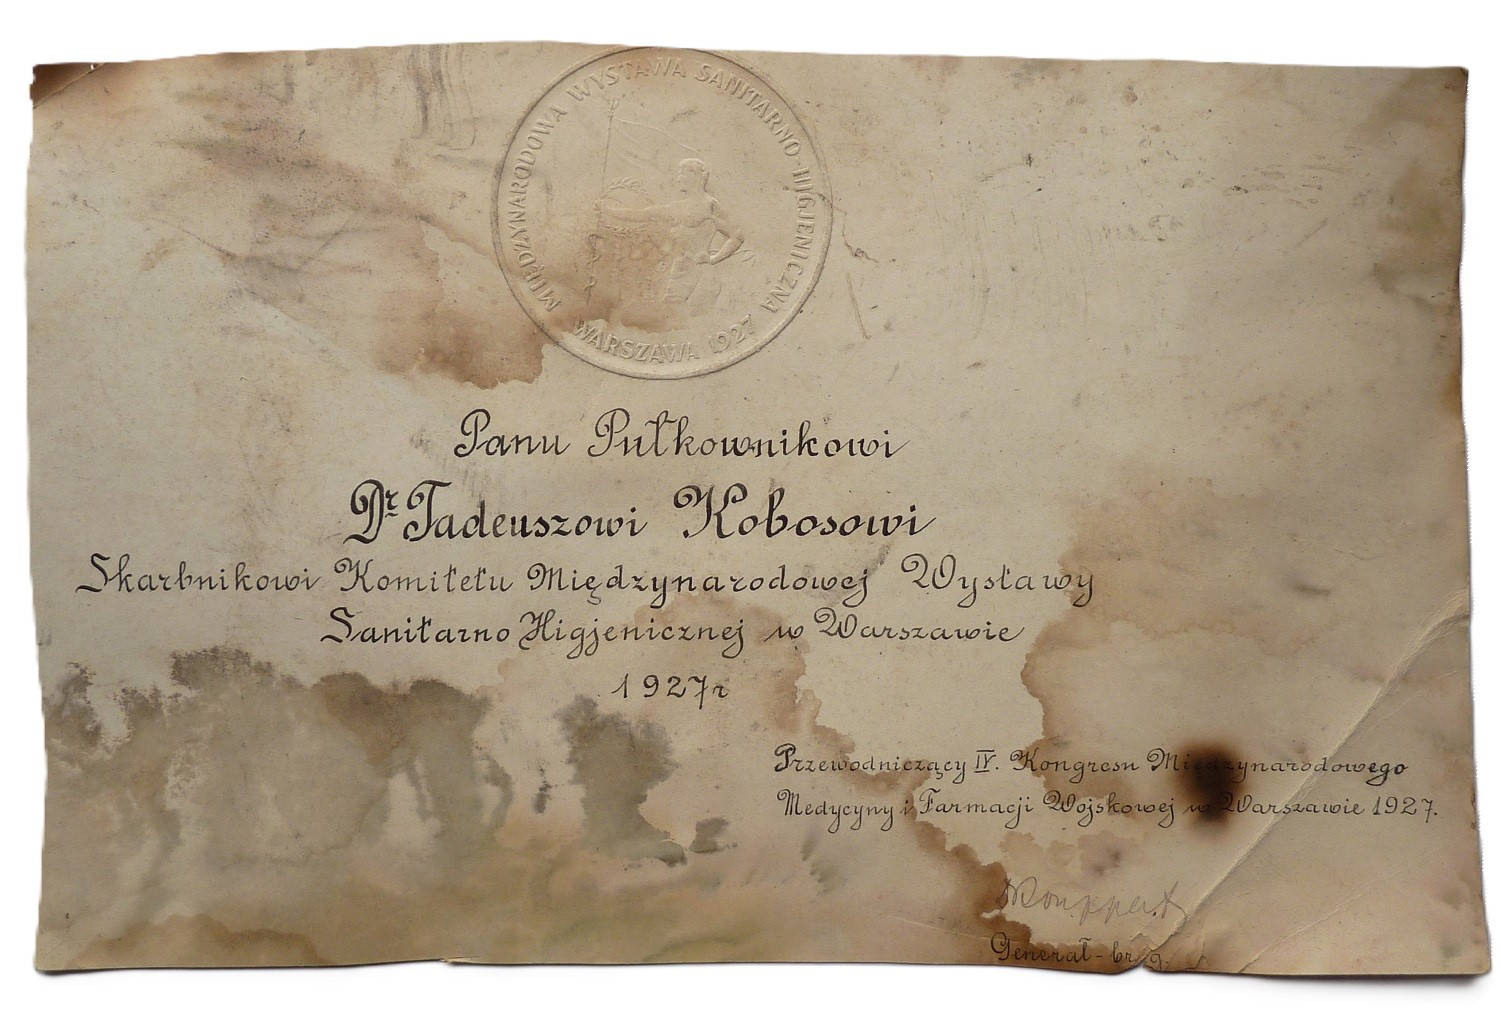 MIĘDZYNARODOWA WYSTAWA SANITARNO-HIGJENICZNA
WARSZAWA 1927
Panu Pułkownikowi
Dr Tadeuszowi Kobosowi
Skarbnikowi Komitetu Międzynarodowej Wystawy
Sanitarno Higjenicznej w Warszawie
1927r
Przewodniczący IV. Kongresu Międzynarodowego
Medycyny i Farmacji Wojskowej w Warszawie 1927.
Rouppert
Generał-bryg.